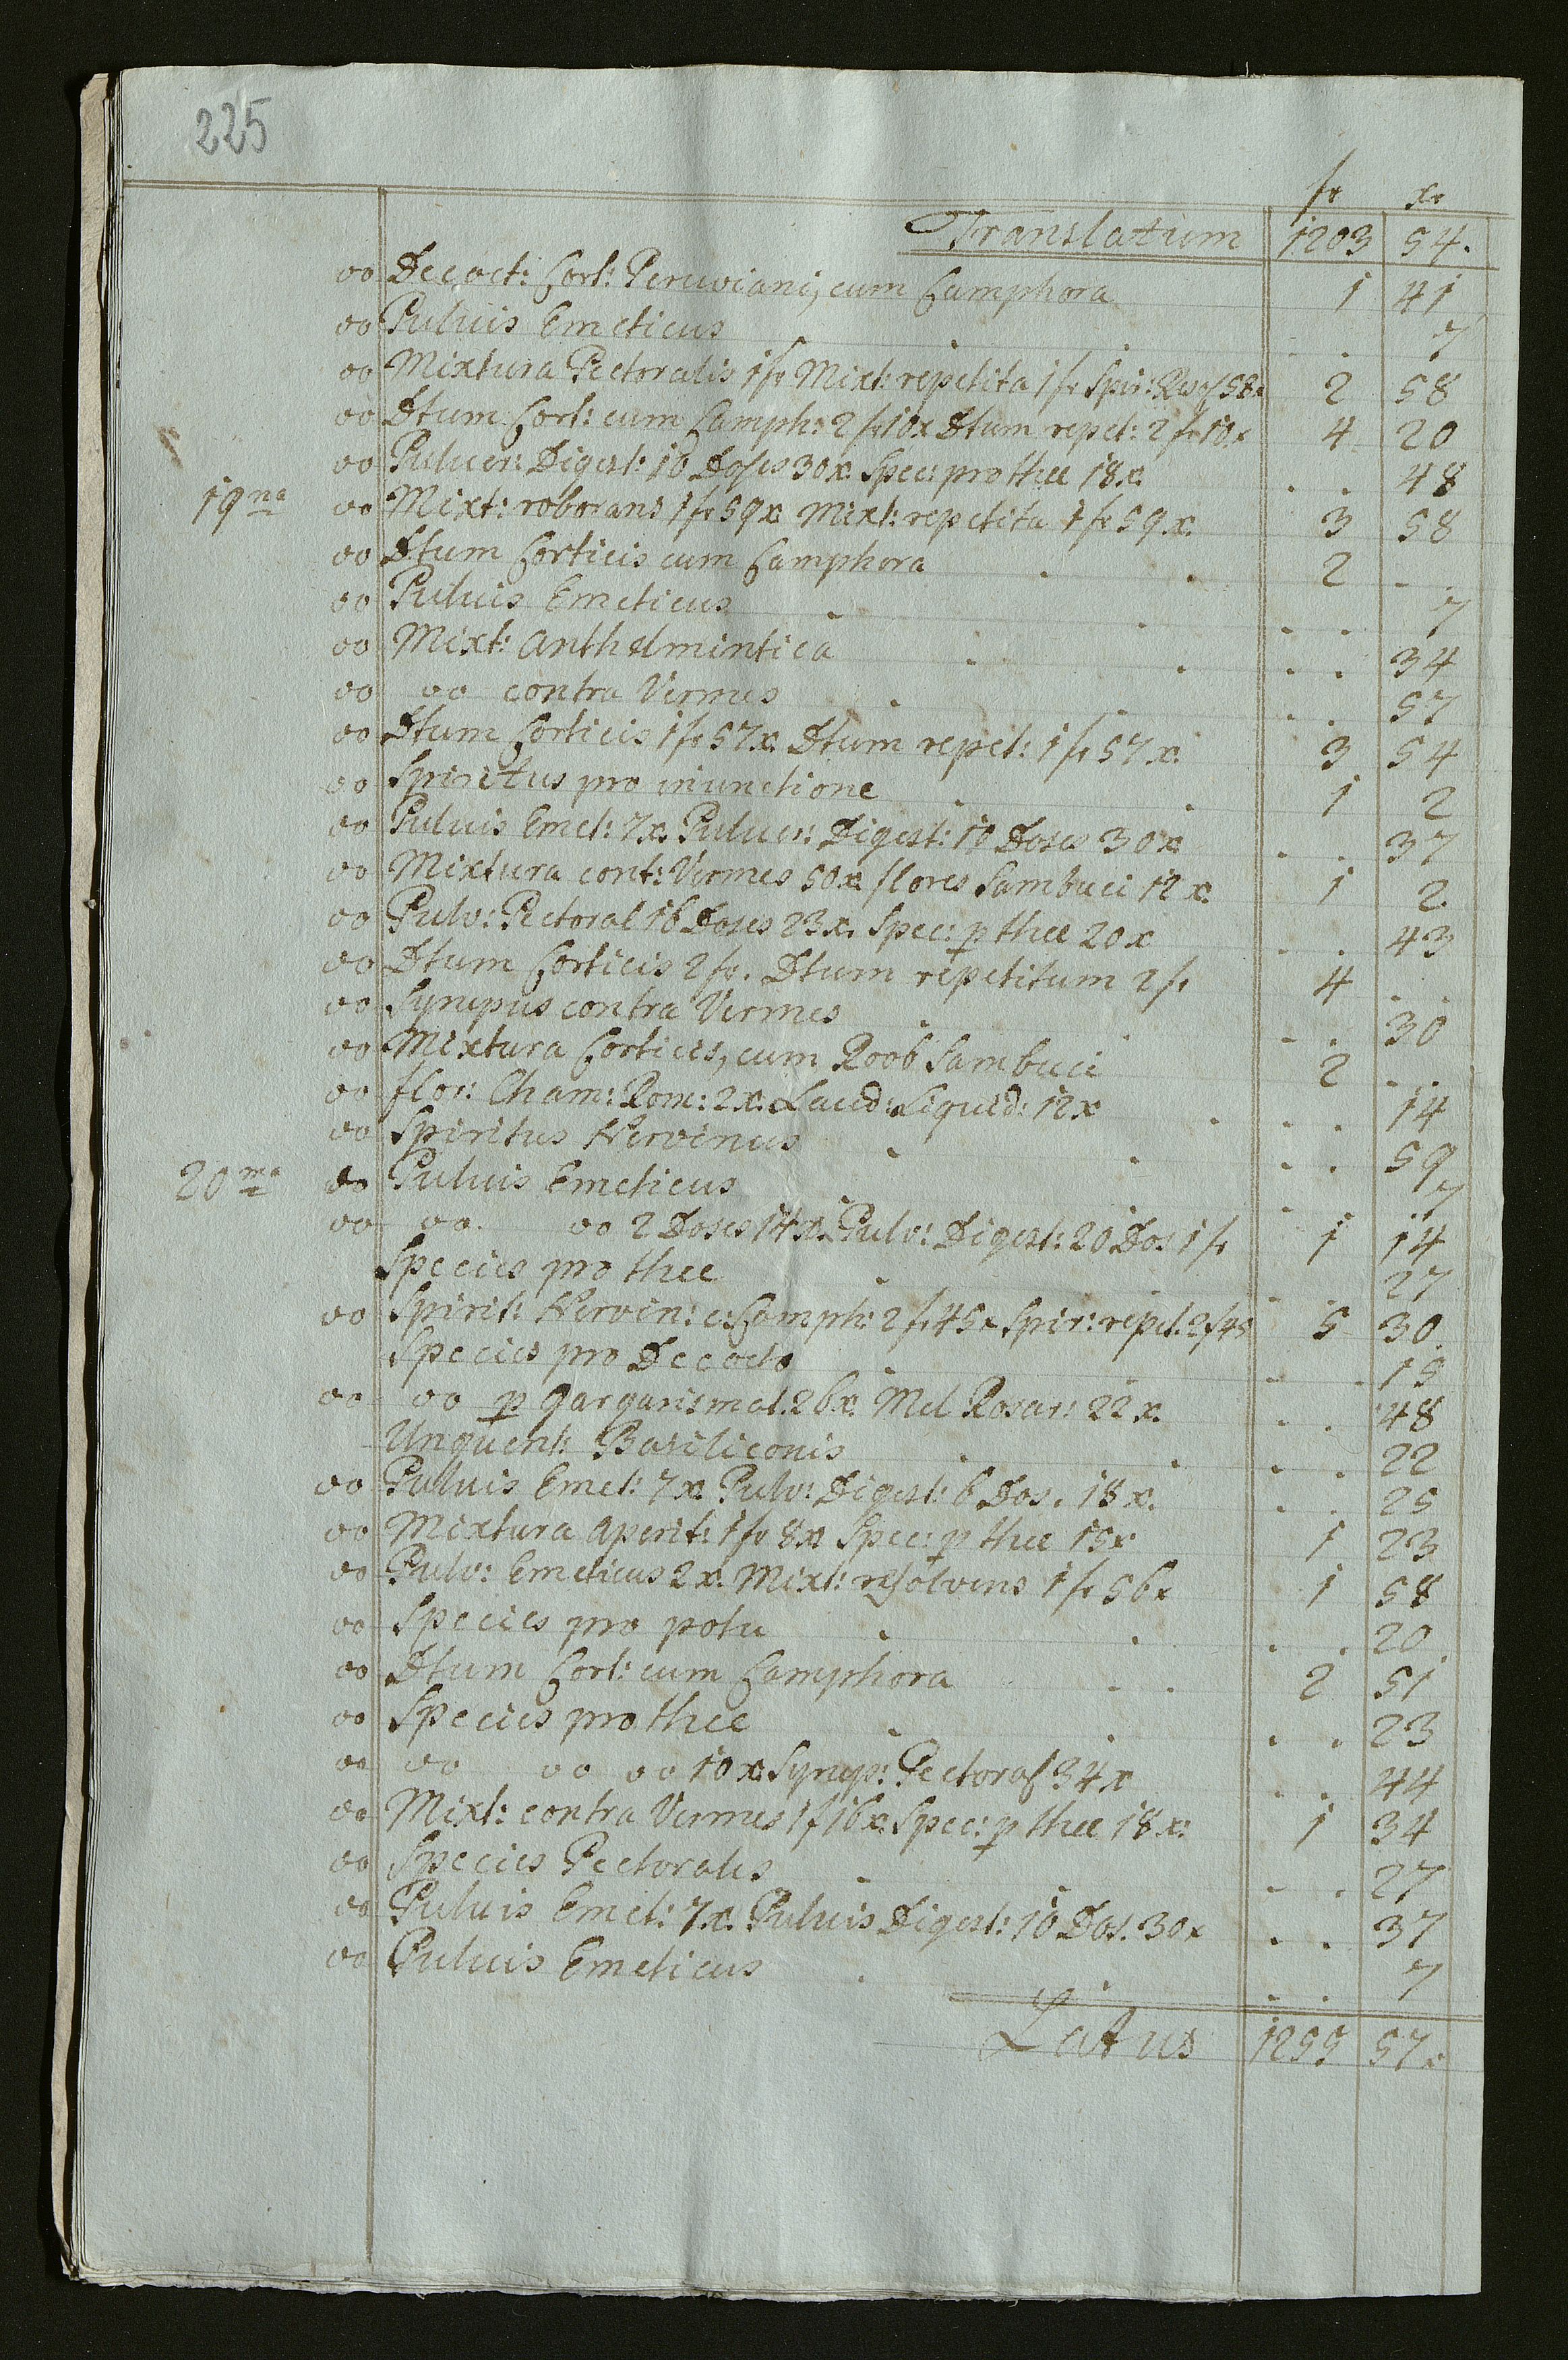 225
fr xr
Translatum 1203 54.
oo Decoct: Cort: Peruviani, cum Camphora 1 41
oo Pulvis Emeticus . . 7
oo Mixtura Pectoralis 1fr Mixt: repetita 1fr Spir: 58x 2 58
oo Dtum Cort: cum Camph: 2fr10x Dtum repet: 2fr10x 4 20
oo Pulver: Digest: 10 Doses 30x. Spec: pro thee 18x. . . 48
19na oo Mixt: roborans 1fr59x Mixt: repetita 1fr59x. 3 58
oo Dtum Corticis cum Camphora 2 . .
oo Pulvis Emeticus . . 7
oo Mixt: Anthelmintica . . 34
oo oo contra Vermes . . 57
oo Dtum Corticis 1fr57x. Dtum repet: 1fr57x. 3 54
oo Spiritus pro injunctione 1 2
oo Pulvis Emet: 7x. Pulver: Digest: 10 Doses 30x . . 37
oo Mixtura cont: Vermes 50x. flores Sambuci 12x. 1 2
oo Pulv: Pectoral 16 Doses 23x. Spec: p thee 20x . . 43
oo Dtum Corticis 2fr. Dtum repetitum 2fr 4 . .
oo Syrupus contra Vermes . . 30
oo Mixtura Corticis, cum Roob Sambuci 2 . .
oo flor: Cham: Rom: 2x. Laud: Liquid: 12x . . 14
oo Spiritus Nervinus . . 59
20ma oo Pulvis Emeticus . . 7
oo oo. oo 2 Doses 14x. Pulv: Digest: 20 Dos 1fr 1 14
Species pro thee . . 27
oo Spirit: Nervin: c: Camph: 2fr45x Spir: repet: 2f45 5 30
Species pro Decocto . . 15
oo oo p gargarismat. 26x. Mel Rosar: 22x. . . 48
Unguent: Basiliconis . . 22
oo Pulvis Emet: 7x. Pulv: Digest: 6 Dos. 18x. . . 25
oo Mixtura Aperit: 1fr8x Spec: p thee 15x 1 23
oo Pulv: Emeticus 2x. Mixt: resolvens 1fr56x 1 58
oo Species pro potu . . 20
oo Dtum Cort: cum Camphora 2 51
oo Species pro thee . . 23
oo oo oo oo 10x. Syrup: Pectoral 34x . . 44
oo Mixt: contra Vermes 1f16x. Spec: p thee 18x: 1 34
oo Species Pectoralis . . 27
oo Pulvis Emet: 7x. Pulvis Digest: 10 Dos. 30x . . 37
oo Pulvis Emeticus . . 7
Latus 1255 57x